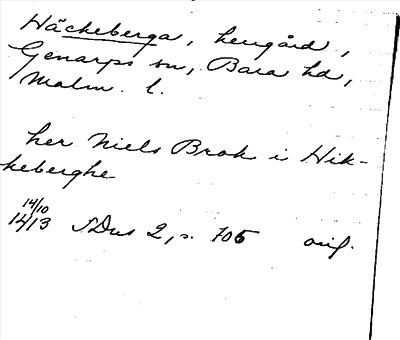 Häckeberga, herrgård,
Genarps sn, Bara hd,
Malm. l.
her Niels Brok i Hik-
keberghe
14/10
1413 SDns 2, s. 705 orig.